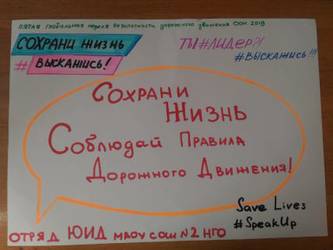 ПЯТАЯ ГЛОБАЛЬНАЯ НЕДЕЛЯ БЕЗОПАСНОСТИ ДОРОЖНОГО ДВИЖЕНИЯ ООН 2019
СОХРАНИ ЖИЗНЬ
# ВЫСКАЖИСЬ!
ТЫ#ЛИДЕР?!
#ВЫСКАЖИСЬ!!!
Сохрани
Жизнь
Соблюдай Правила
Дорожного Движения!
Save Lives
#SpeakUp
ОТРЯД ЮИД МАОУ СОШ N2 НГО